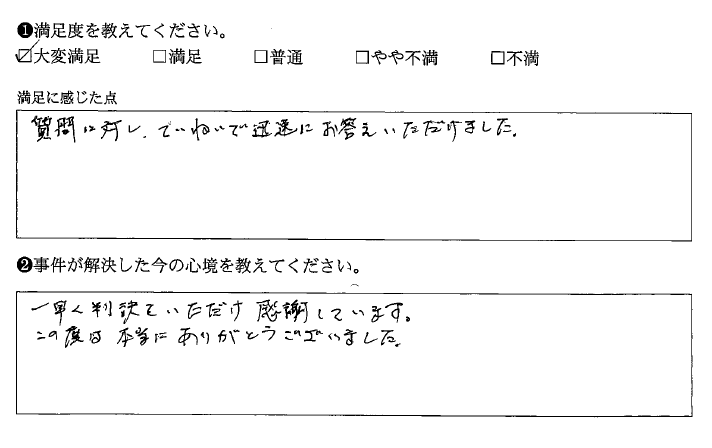 ❶満足度を教えてください。
☑大変満足 □満足 □普通 □やや不満 □不満
満足に感じた点
質問に対し、ていねいで迅速にお答えいただけました。
❷事件が解決した今の心境を教えてください。
一早く判決ていただけ感謝しています。
この度は本当にありがとうございました。